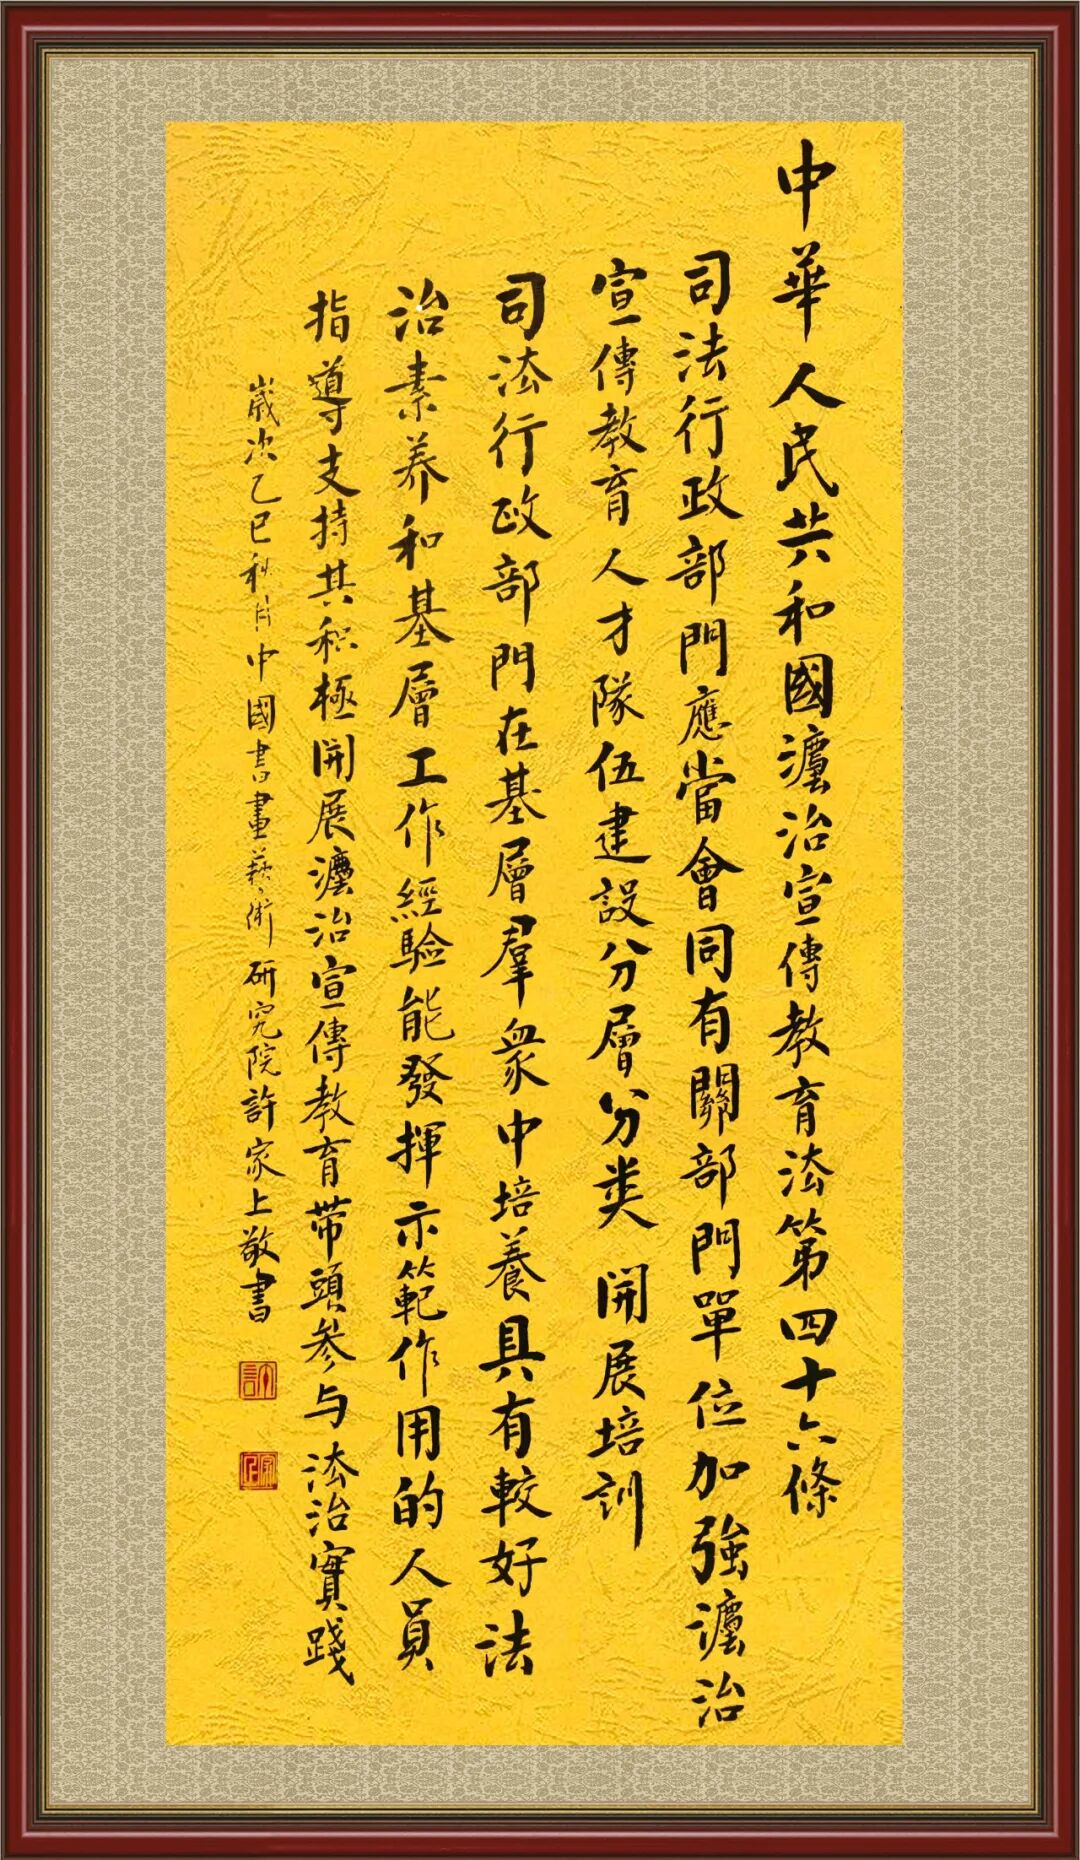 中華人民共和國灋治宣傳教育法第四十六條
司法行政部門應當會同有關部門單位加強灋治
宣傳教育人才隊伍建設分層分类開展培訓
司法行政部門在基層羣衆中培養具有較好法
治素养和基層工作經驗能發揮示範作用的人員
指導支持其积極開展灋治宣傳教育带頭參与法治實踐
歲次乙巳秋月中國書畫藝術研究院許家上敬書